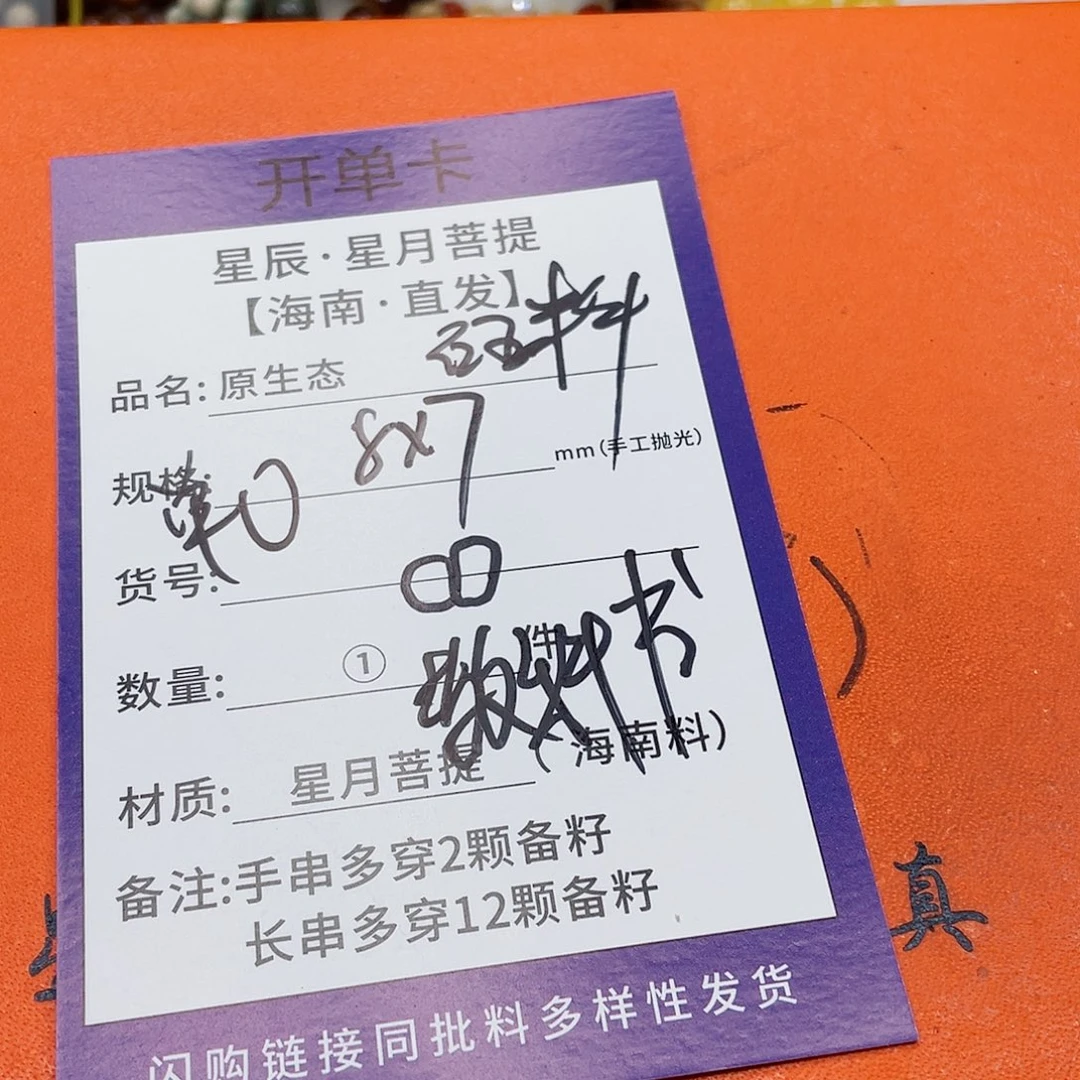 开单卡
星辰·星月菩提
【海南·直发】
品名:原生态 料
规格: 8x7 mm(手工抛光)
货号: 08
数量: ① 件
材质: 星月菩提 (海南料)
备注:手串多穿2颗备籽
长串多穿12颗备籽
闪购链接同批料多样性发货
真